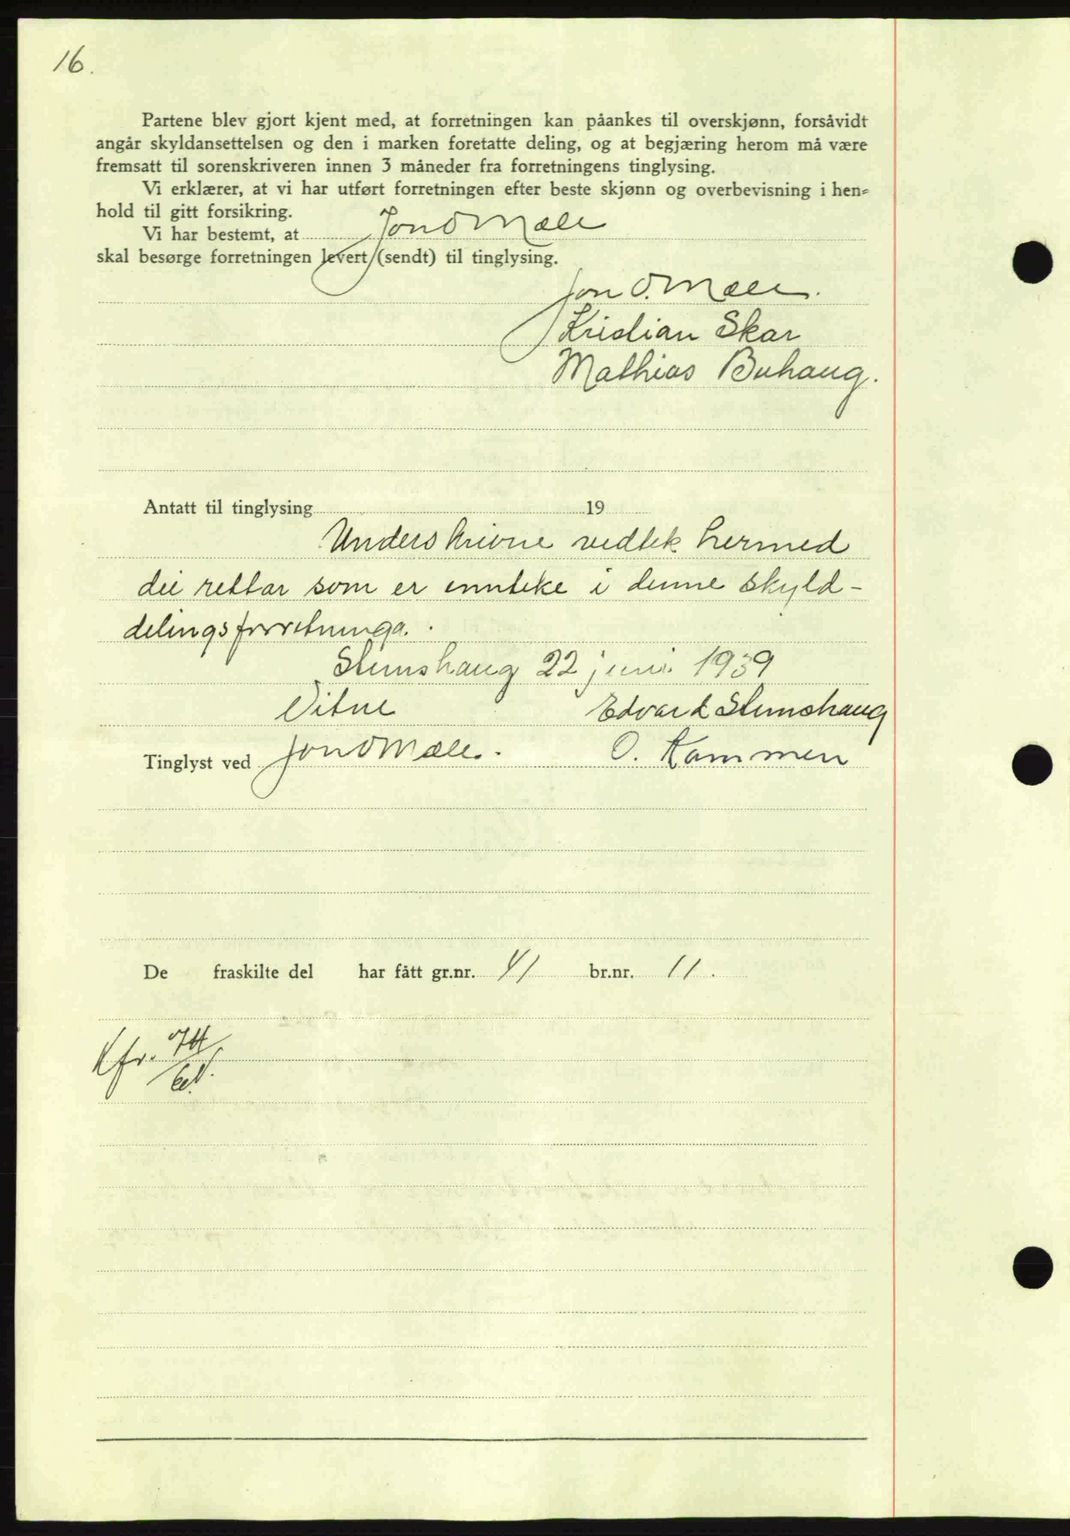 16.
Partene blev gjort kjent med, at forretningen kan påankes til overskjønn, forsåvidt
angår skyldansettelsen og den i marken foretatte deling, og at begjæring herom må være
fremsatt til sorenskriveren innen 3 måneder fra forretningens tinglysing.
Vi erklærer, at vi har utført forretningen efter beste skjønn og overbevisning i hen-
hold til gitt forsikring.
Vi har bestemt, at Jon O Mæle
skal besørge forretningen levert (sendt) til tinglysing.
Jon O. Mæle.
Kristian Skar
Mathias Buhaug.
Antatt til tinglysing 19
Underskrivne vedtek hermed
dei rettar som er innteke i denne skyld-
delingsforretninga.
Stemshaug 22 juni 1939
Vitne Edvard Stemshaug
Tinglyst ved Jon O Mæle. O. Kammen
De fraskilte del har fått gr.nr. 41 br.nr. 11.
Kfr.